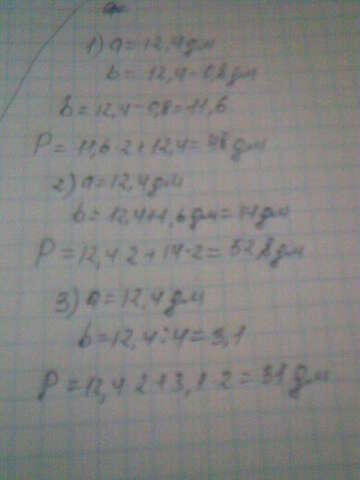 1) a = 12,4 дм
b = 12,4 - 0,8 дм
b = 12,4 - 0,8 = 11,6
P = 11,6 · 2 + 12,4 = 48 дм
2) a = 12,4 дм
b = 12,4 + 1,6 дм = 14 дм
P = 12,4 2 + 14 · 2 = 52,8 дм
3) a = 12,4 дм
b = 12,4 : 4 = 3,1
P = 12,4 2 + 3,1 · 2 = 31 дм